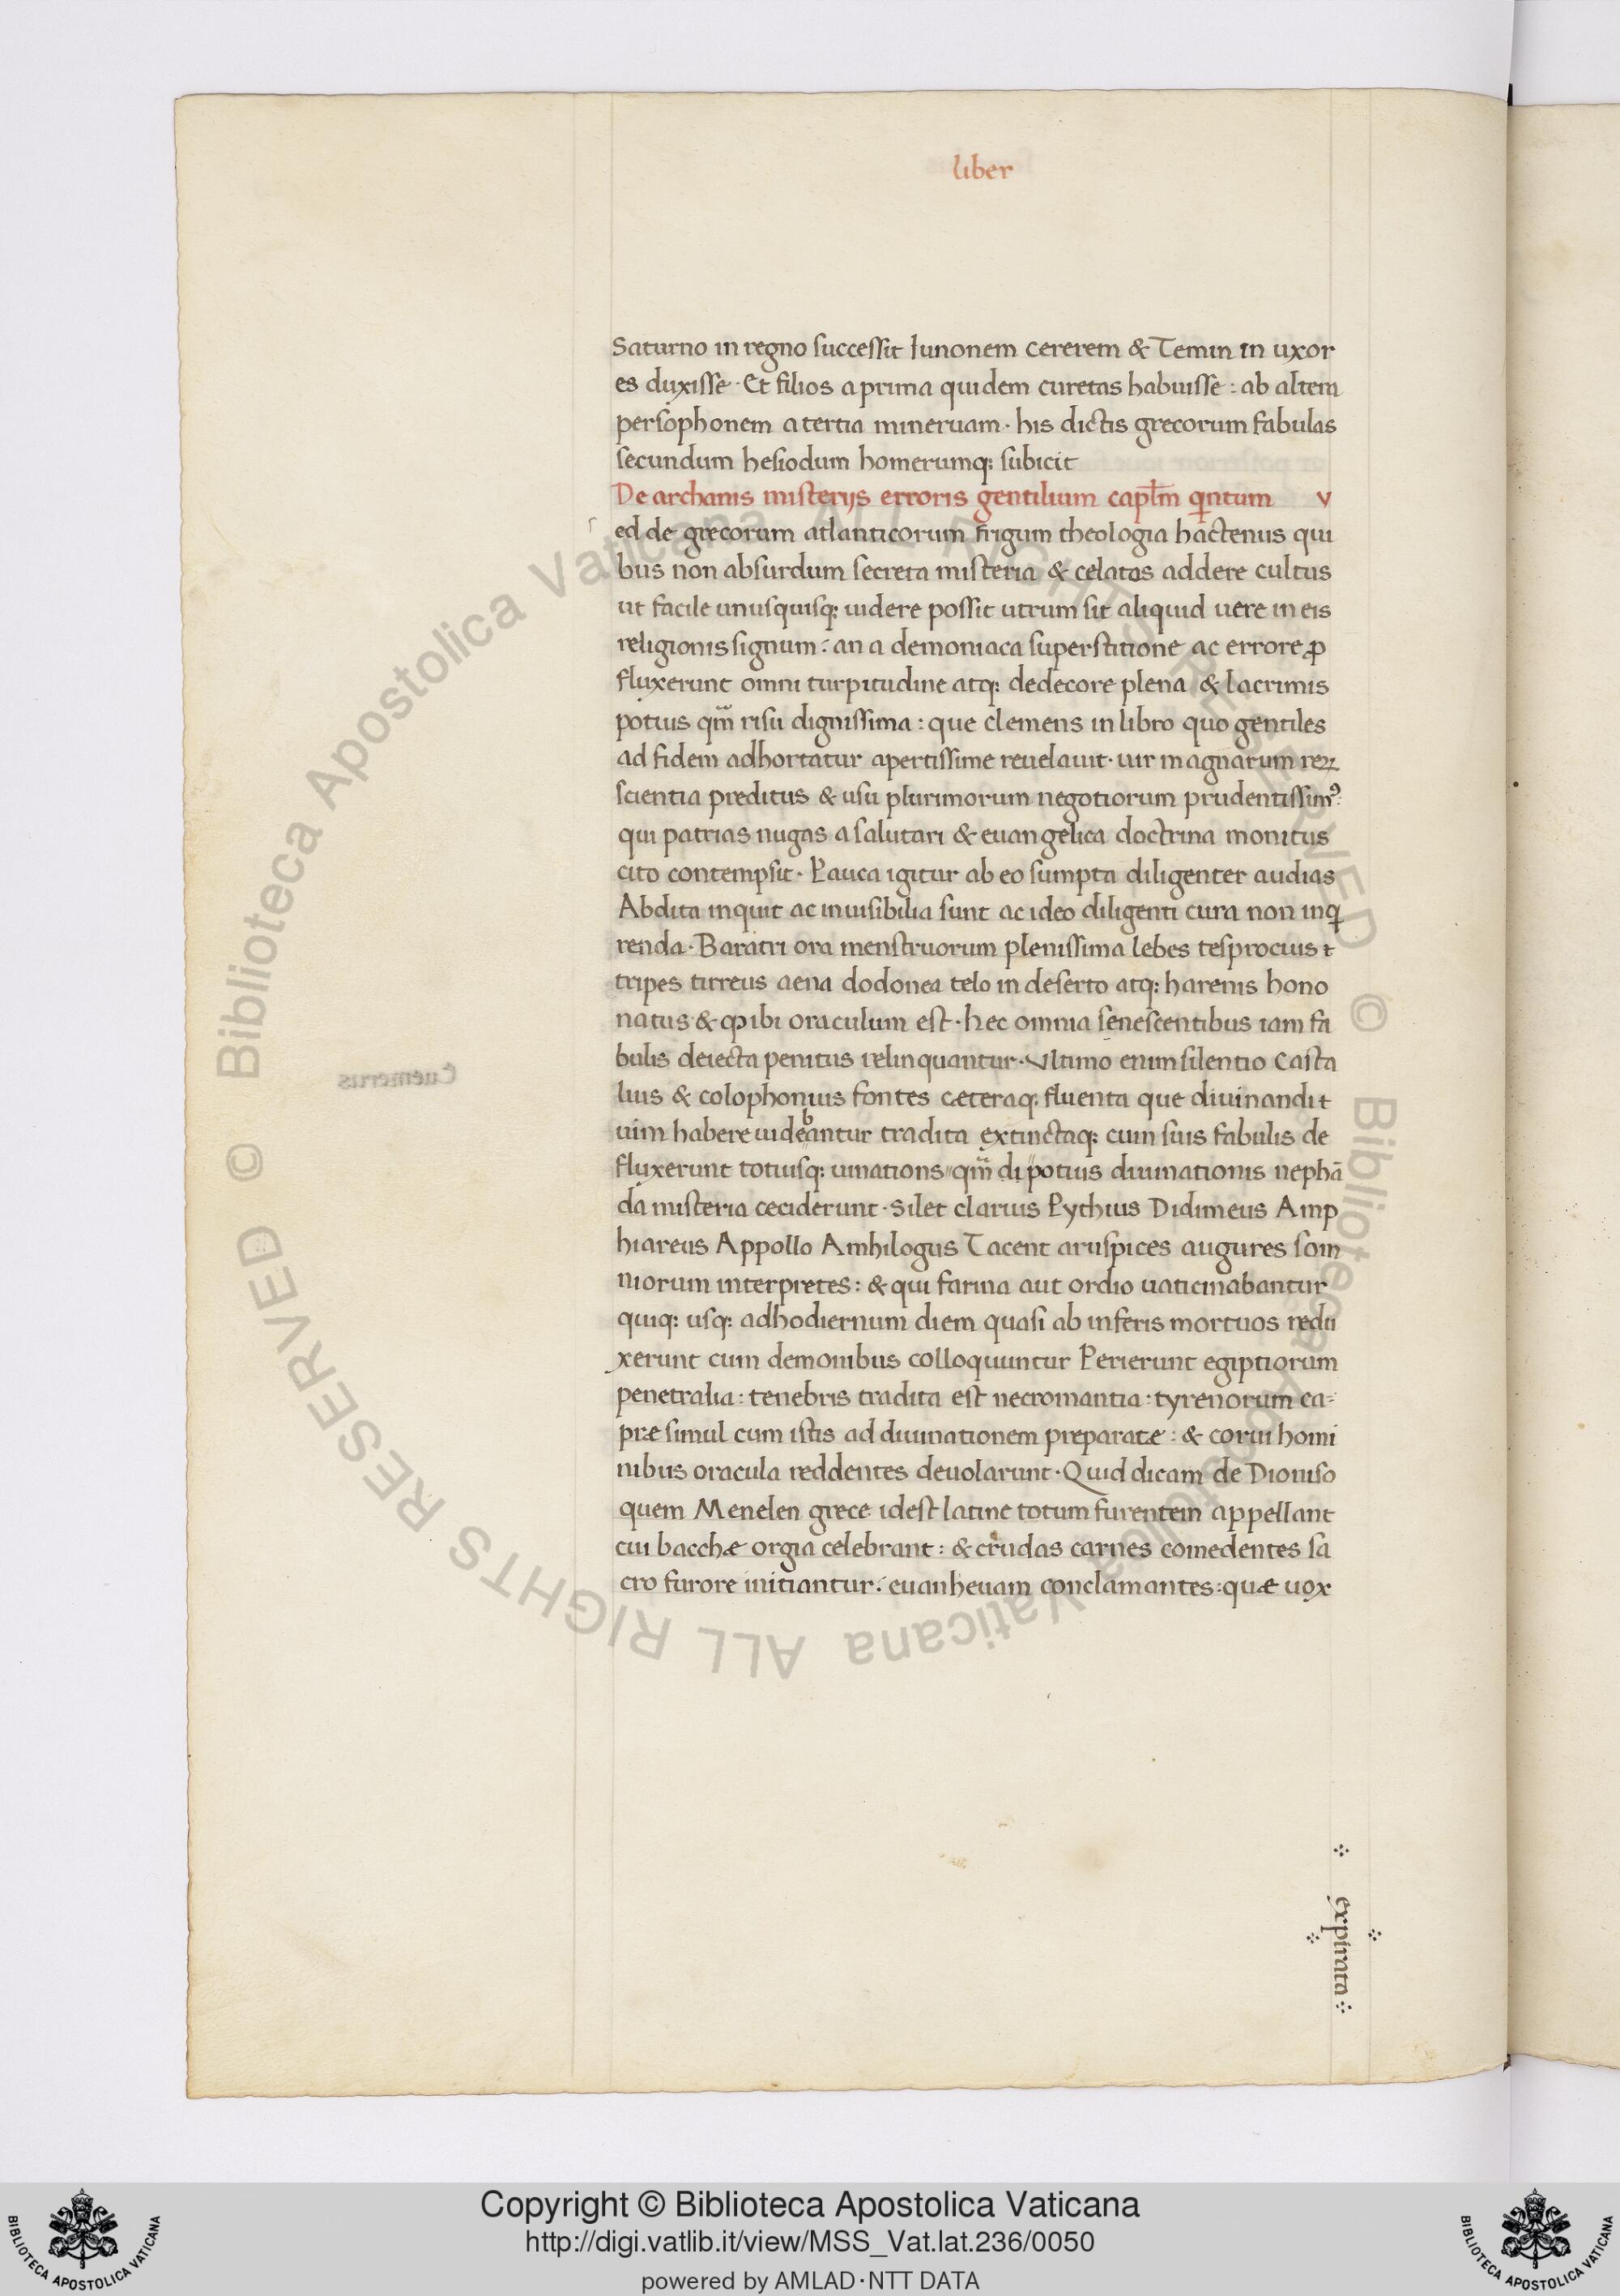 liber
Saturno in regno successit Iunonem cererem & Temin in uxor
es duxisse · Et filios a prima quidem curetas habuisse : ab altera
persophonem a tertia mineruam · his dictis grecorum fabulas
secundum hesiodum homerumq; subicit
De archanis misterijs erroris gentilium capl̃m qintum v
s
ed de grecorum atlanticorum frigum theologia hactenus qui
bus non absurdum secreta misteria & celatas addere cultus
ut facile unusquisq; uidere possit utrum sit aliquid uere in eis
religionis signum : an a demoniaca superstitione ac errore ꝓ
fluxerunt omni turpitudine atq; dedecore plena & lacrimis
potius qm̃ risu dignissima : que clemens in libro quo gentiles
ad fidem adhortatur apertissime reuelauit · uir magnarum reꝝ
scientia preditus & usu plurimorum negotiorum prudentissimꝰ :
qui patrias nugas a salutari & euangelica doctrina monitus
cito contempsit · Pauca igitur ab eo sumpta diligenter audias
Abdita inquit ac inuisibilia sunt ac ideo diligenti cura non inq
renda · Baratri ora menstruorum plenissima lebes tesprocius t
tripes tirreus aena dodonea telo in deserto atq; harenis hono
natus & ꝙ ibi oraculum est · hec omnia senescentibus iam fa
bulis deiecta penitus relinquantur · Vltimo enim silentio Casta
lius & colophonius fontes cæteraq; fluenta que diuinandi t
uim habere uidebantur tradita extinctaq; cum suis fabulis de
fluxerunt totiusq; uinations " qm̃ di " potius diuinationis nephã
da misteria ceciderunt · Silet clarius Pythius Didimeus Amp
hiareus Appollo Amhilogus Tacent aruspices augures som
niorum interpretes : & qui farina aut ordio uaticinabantur
quiq; usq; adhodiernum diem quasi ab inferis mortuos redu
xerunt cum demonibus colloquuntur Perierunt egiptiorum
penetralia : tenebris tradita est necromantia : tyrenorum ca=
præ simul cum istis ad diuinationem preparatæ : & corui homi
nibus oracula reddentes deuolarunt · Quid dicam de Dioniso
quem Menelen grece idest latine totum furentem appellant
cui bacchæ orgia celebrant : & crudas carnes comedentes sa
cro furore initiantur : euanheuam conclamantes : quæ uox
expirata
Cuemerus
© Biblioteca Apostolica Vaticana ALL RIGHTS RESERVED © Biblioteca Apostolica Vaticana ALL RIGHTS RESERVED
Copyright © Biblioteca Apostolica Vaticana
http://digi.vatlib.it/view/MSS_Vat.lat.236/0050
powered by AMLAD·NTT DATA
BIBLIOTECA APOSTOLICA VATICANA
BIBLIOTECA APOSTOLICA VATICANA